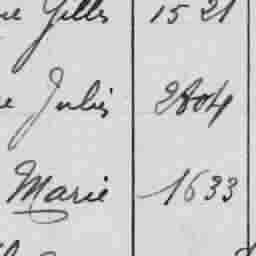 Gilles 1521
Jules 2804
Marie 1633